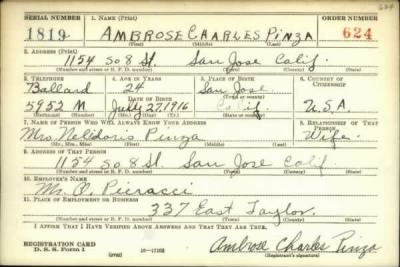 624
SERIAL NUMBER 1. NAME (Print) ORDER NUMBER
1819 AMBROSE CHARLES PINZA 624
(First) (Middle) (Last)
2. ADDRESS (Print)
1154 So 8 St. San Jose Calif.
(Number and street or R. F. D. number) (Town) (County) (State)
3. TELEPHONE 4. AGE IN YEARS 5. PLACE OF BIRTH 6. COUNTRY OF CITIZENSHIP
Ballard 24 San Jose
DATE OF BIRTH (Town or county)
5952 M July 27, 1916 Calif. U.S.A.
(Exchange) (Number) (Mo.) (Day) (Yr.) (State or country)
7. NAME OF PERSON WHO WILL ALWAYS KNOW YOUR ADDRESS 8. RELATIONSHIP OF THAT PERSON
Mrs. Nelldoris Pinza Wife.
(Mr., Mrs., Miss) (First) (Middle) (Last)
9. ADDRESS OF THAT PERSON
1154 So 8 St. San Jose Calif
(Number and street or R. F. D. number) (Town) (County) (State)
10. EMPLOYER'S NAME
Mr. P. Pieracci
11. PLACE OF EMPLOYMENT OR BUSINESS
337 East Taylor.
(Number and street or R. F. D. number) (Town) (County) (State)
I AFFIRM THAT I HAVE VERIFIED ABOVE ANSWERS AND THAT THEY ARE TRUE.
REGISTRATION CARD
D. S. S. Form 1 Ambrose Charles Pinza
(Registrant's signature)